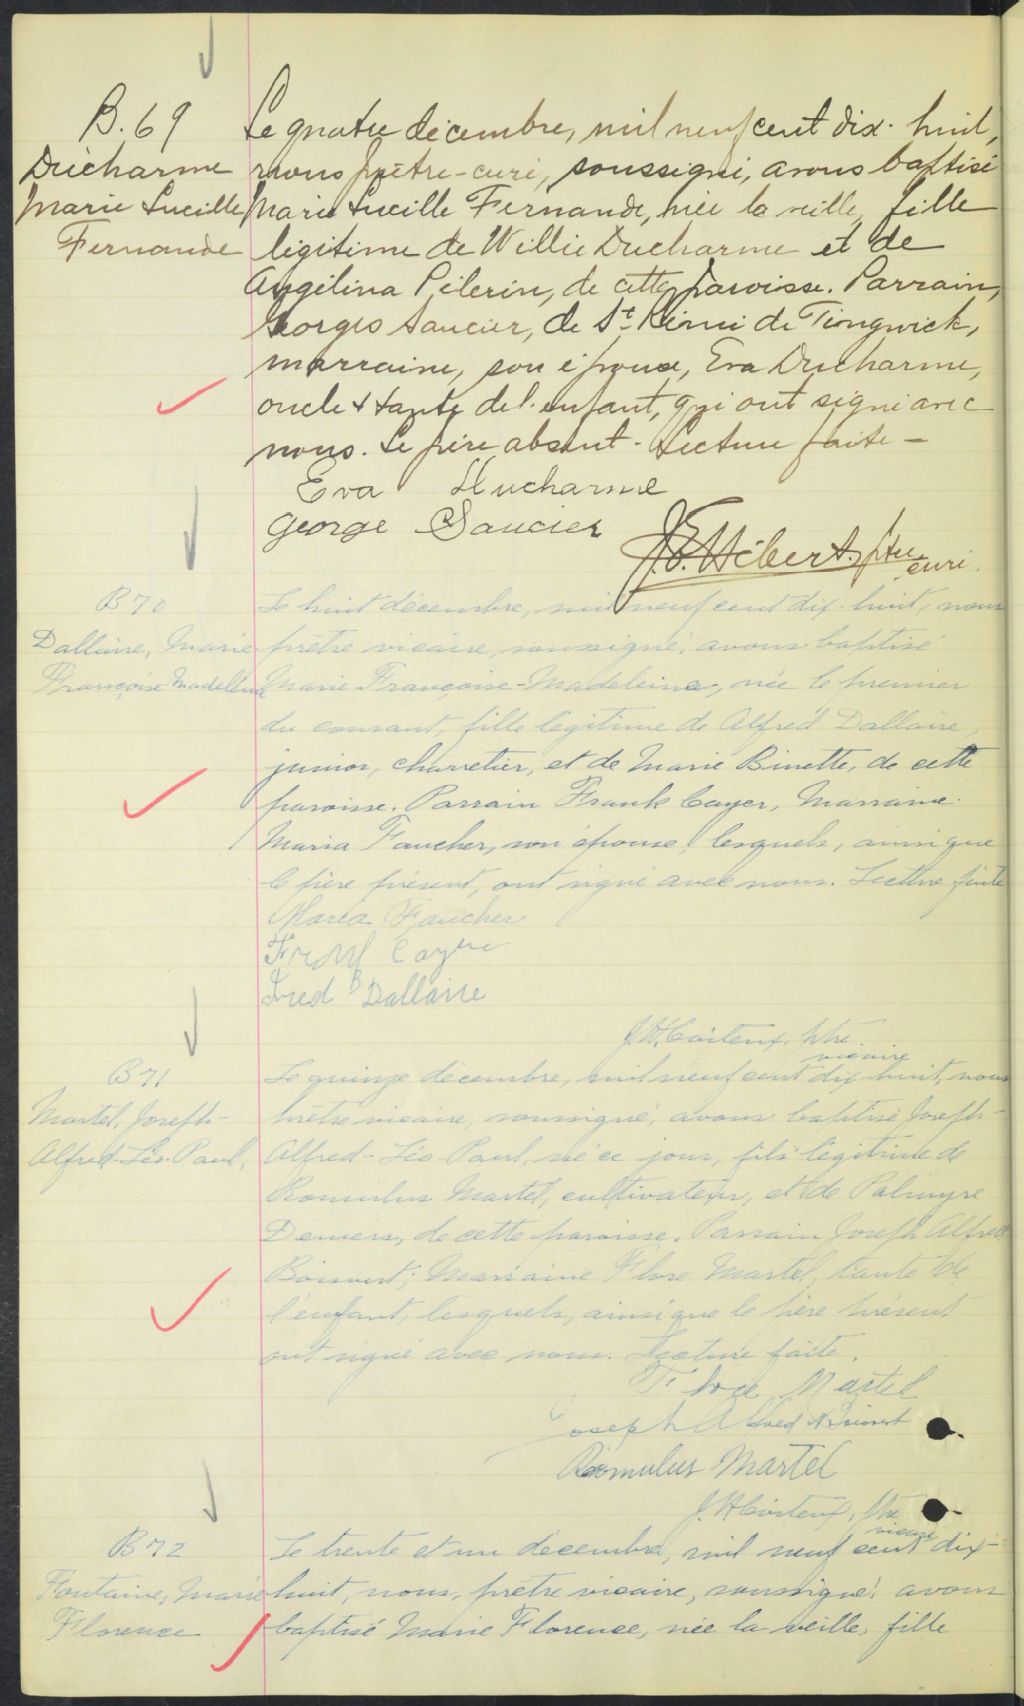 B. 69
Ducharme
Marie Lucille
Fernande
Le quatre décembre, mil neuf cent dix-huit,
nous prêtre-curé, soussigné, avons baptisé
Marie Lucille Fernande, née la veille, fille
légitime de Willie Ducharme et de
Angélina Pélerin, de cette paroisse. Parrain,
Georges Saucier, de St Rémi de Tingwick,
marraine, son épouse, Eva Ducharme,
oncle & tante de l'enfant, qui ont signé avec
nous. Le père absent - Lecture faite -
Eva Ducharme
George Saucier
J. E. Hébert, ptre
curé.
B 70
Dallaire, Marie
Françoise Madeleine
Le huit décembre, mil neuf cent dix-huit, nous
prêtre vicaire, soussigné, avons baptisé
Marie Françoise-Madeleine, née le premier
du courant, fille légitime de Alfred Dallaire,
junior, charretier, et de Marie Binette, de cette
paroisse. Parrain Frank Cayer, Marraine
Maria Faucher, son épouse, lesquels, ainsi que
le père présent, ont signé avec nous. Lecture faite
Maria Faucher
Frank Cayer
Fred B Dallaire
ptre
vicaire
B 71
Martel, Joseph-
Alfred-Léo-Paul,
Le quinze décembre, mil neuf cent dix huit, nous
prêtre vicaire, soussigné, avons baptisé Joseph-
Alfred-Léo-Paul, né ce jour, fils légitime de
Romulus Martel, cultivateur, et de Palmyre
Demers, de cette paroisse. Parrain Joseph Alfred
Boisvert; Marraine Flore Martel, tante de
l'enfant, lesquels, ainsi que le père présent
ont signé avec nous. Lecture faite.
Flore Martel
Joseph Alfred Boisvert
Romulus Martel
ptre
vicaire
B 72
Fontaine, Marie
Florence
Le trente et un décembre, mil neuf cent dix-
huit, nous, prêtre vicaire, soussigné, avons
baptisé Marie Florence, née la veille, fille